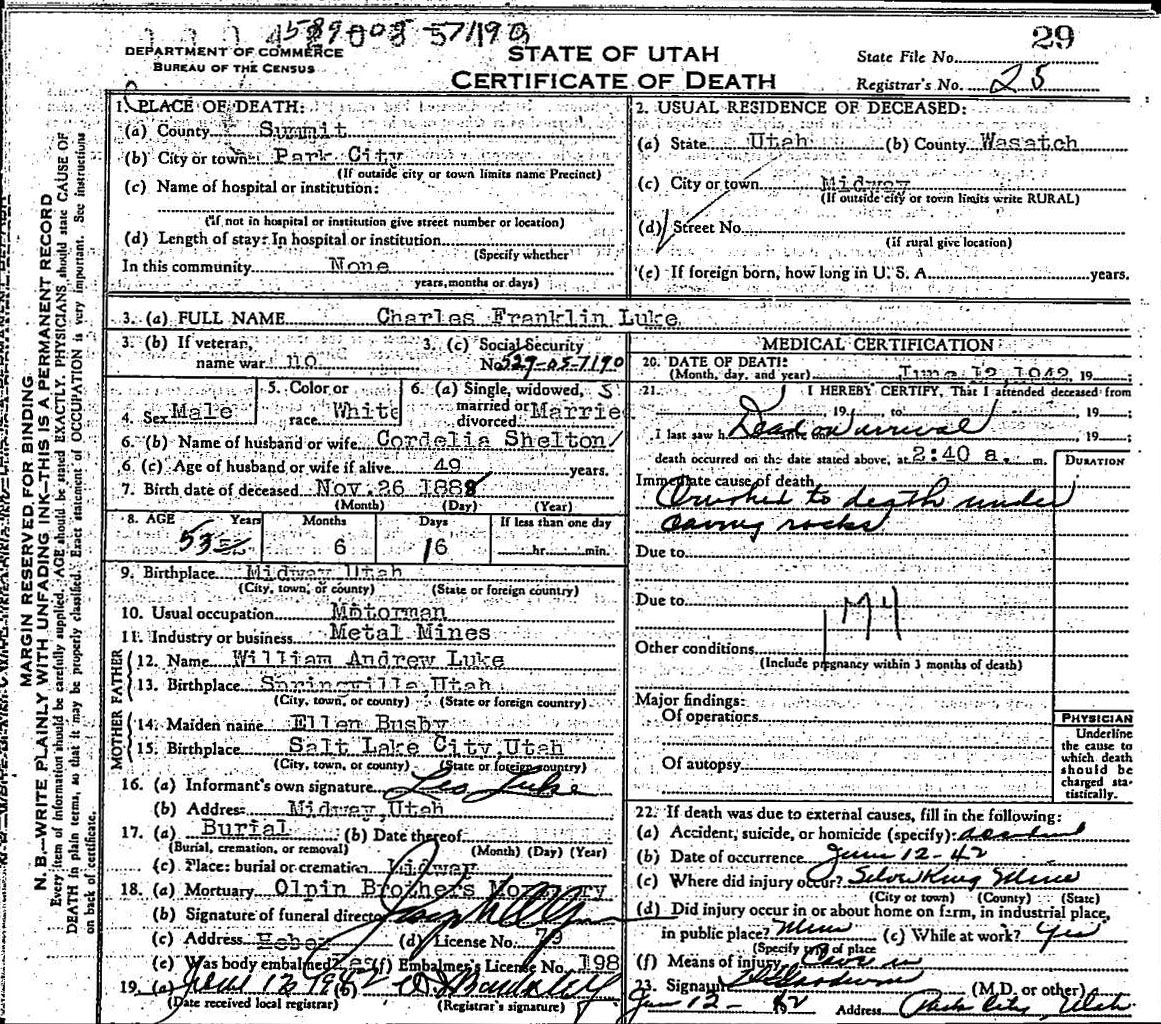 589005-57190
DEPARTMENT OF COMMERCE
BUREAU OF THE CENSUS
STATE OF UTAH
CERTIFICATE OF DEATH
29
State File No.
Registrar's No. 25
MARGIN RESERVED FOR BINDING
N. B.—WRITE PLAINLY WITH UNFADING INK—THIS IS A PERMANENT RECORD
Every item of information should be carefully supplied. AGE should be stated EXACTLY. PHYSICIANS should state CAUSE OF
DEATH in plain terms, so that it may be properly classified. Exact statement of OCCUPATION is very important. See instructions
on back of certificate.
1. PLACE OF DEATH:
(a) County Summit
(b) City or town Park City
(If outside city or town limits name Precinct)
(c) Name of hospital or institution:
(If not in hospital or institution give street number or location)
(d) Length of stay: In hospital or institution
(Specify whether
In this community None
years, months or days)
2. USUAL RESIDENCE OF DECEASED:
(a) State Utah (b) County Wasatch
(c) City or town Midway
(If outside city or town limits write RURAL)
(d) Street No.
(If rural give location)
(e) If foreign born, how long in U. S. A. years.
3. (a) FULL NAME Charles Franklin Luke
3. (b) If veteran, name war no
3. (c) Social Security No. 529-05-7190
4. Sex Male
5. Color or race White
6. (a) Single, widowed, married or divorced Married 5
6. (b) Name of husband or wife Cordelia Shelton
6 (c) Age of husband or wife if alive 49 years.
7. Birth date of deceased Nov. 26 1888
(Month) (Day) (Year)
8. AGE Years Months Days If less than one day
53 6 16 hr. min.
9. Birthplace Midway Utah
(City, town, or county) (State or foreign country)
10. Usual occupation Motorman
11. Industry or business Metal Mines
FATHER
12. Name William Andrew Luke
13. Birthplace Springville, Utah
(City, town, or county) (State or foreign country)
MOTHER
14. Maiden name Ellen Busby
15. Birthplace Salt Lake City, Utah
(City, town, or county) (State or foreign country)
16. (a) Informant's own signature Leo Luke
(b) Address Midway, Utah
17. (a) Burial (b) Date thereof
(Burial, cremation, or removal) (Month) (Day) (Year)
(c) Place: burial or cremation Midway
18. (a) Mortuary Olpin Brothers Mortuary
(b) Signature of funeral director
(c) Address Heber (d) License No. 79
(e) Was body embalmed? Yes (f) Embalmer's License No. 198
19. (a) June 12 1942
(Date received local registrar) (Registrar's signature)
MEDICAL CERTIFICATION
20. DATE OF DEATH:
(Month, day, and year) June 12, 1942, 19 ;
21. I HEREBY CERTIFY, That I attended deceased from
, 19 , to , 19 ;
I last saw h Dead on arrival , 19 ;
death occurred on the date stated above, at 2:40 a. m.
DURATION
Immediate cause of death
Crushed to death under
caving rocks
Due to
Due to
Other conditions
(Include pregnancy within 3 months of death)
Major findings:
Of operations
Of autopsy
PHYSICIAN
Underline
the cause to
which death
should be
charged sta-
tistically.
22. If death was due to external causes, fill in the following:
(a) Accident, suicide, or homicide (specify): accident
(b) Date of occurrence June 12-42
(c) Where did injury occur? Silver King Mine
(City or town) (County) (State)
(d) Did injury occur in or about home on farm, in industrial place,
in public place? Mine (e) While at work? Yes
(Specify type of place
(f) Means of injury Cave in
23. Signature (M.D. or other)
June 12-42 19 Address Park City, Utah